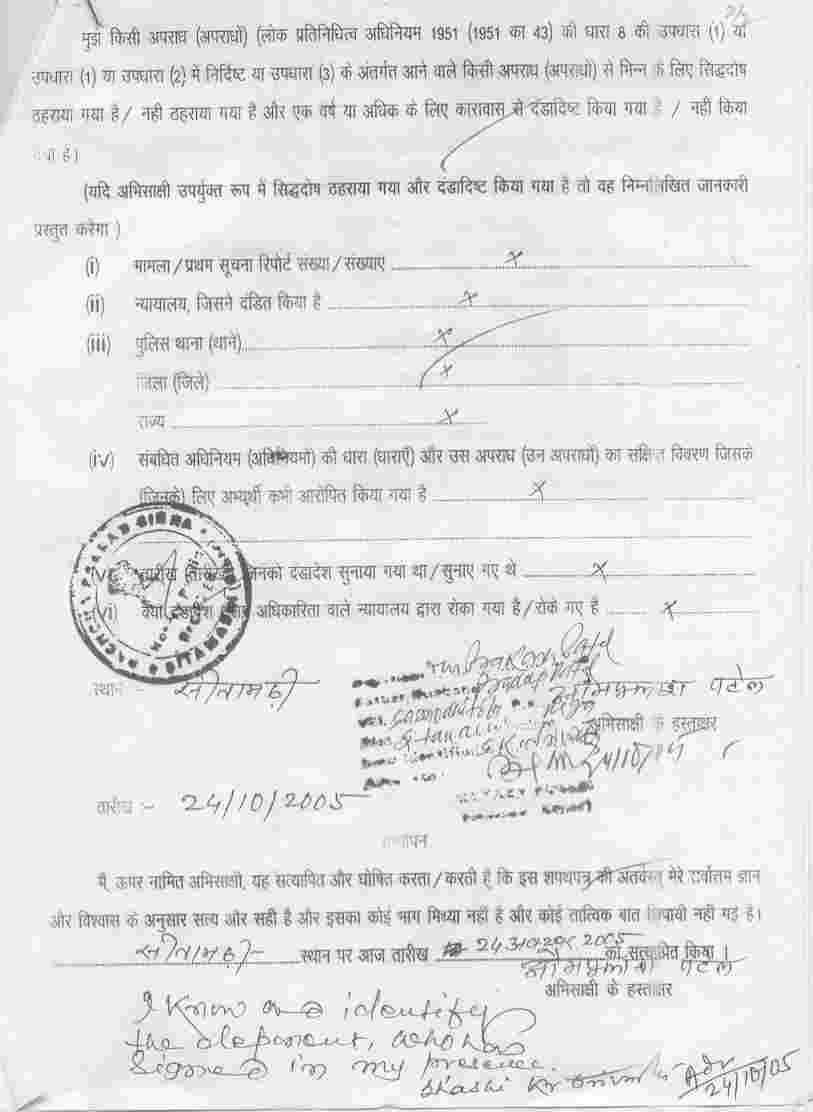 मुझे किसी अपराध (अपराधों) (लोक प्रतिनिधित्व अधिनियम 1951 (1951 का 43) की धारा 8 की उपधारा (1) या
उपधारा (1) या उपधारा (2) में निर्दिष्ट या उपधारा (3) के अंतर्गत आने वाले किसी अपराध (अपराधों) से भिन्न के लिए सिद्धदोष
ठहराया गया है / नही ठहराया गया है और एक वर्ष या अधिक के लिए कारावास से दंडादिष्ट किया गया है / नहीं किया
गया है)
(यदि अभिसाक्षी उपर्युक्त रूप में सिद्धदोष ठहराया गया और दंडादिष्ट किया गया है तो वह निम्नलिखित जानकारी
प्रस्तुत करेगा )
(i) मामला / प्रथम सूचना रिपोर्ट संख्या / संख्याए x
(ii) न्यायालय, जिसने दंडित किया है x
(iii) पुलिस थाना (थाने) x
जिला (जिले) x
राज्य x
(iv) संबंधित अधिनियम (अधिनियमों) की धारा (धाराएँ) और उस अपराध (उन अपराधों) का संक्षिप्त विवरण जिसके
(जिनके) लिए अभ्यर्थी कभी आरोपित किया गया है x
तारीख जिनको दंडादेश सुनाया गया था / सुनाए गए थे x
क्या दंडादेश अधिकारिता वाले न्यायालय द्वारा रोका गया है / रोके गए है x
स्थान :- सीतामढ़ी
ओमप्रकाश पटेल
अभिसाक्षी के हस्ताक्षर
तारीख :- 24/10/2005
सत्यापन
मैं, ऊपर नामित अभिसाक्षी, यह सत्यापित और घोषित करता / करती हूँ कि इस शपथपत्र की अंतर्वस्तु मेरे सर्वोत्तम ज्ञान
और विश्वास के अनुसार सत्य और सही है और इसका कोई भाग मिथ्या नहीं है और कोई तात्विक बात छिपायी नही गई है।
सीतामढ़ी स्थान पर आज तारीख 2005 को सत्यापित किया ।
ओमप्रकाश पटेल
अभिसाक्षी के हस्ताक्षर
I know and identify
the deponent, who has
signed in my presence.
Shashi Kr Adv
24/10/05